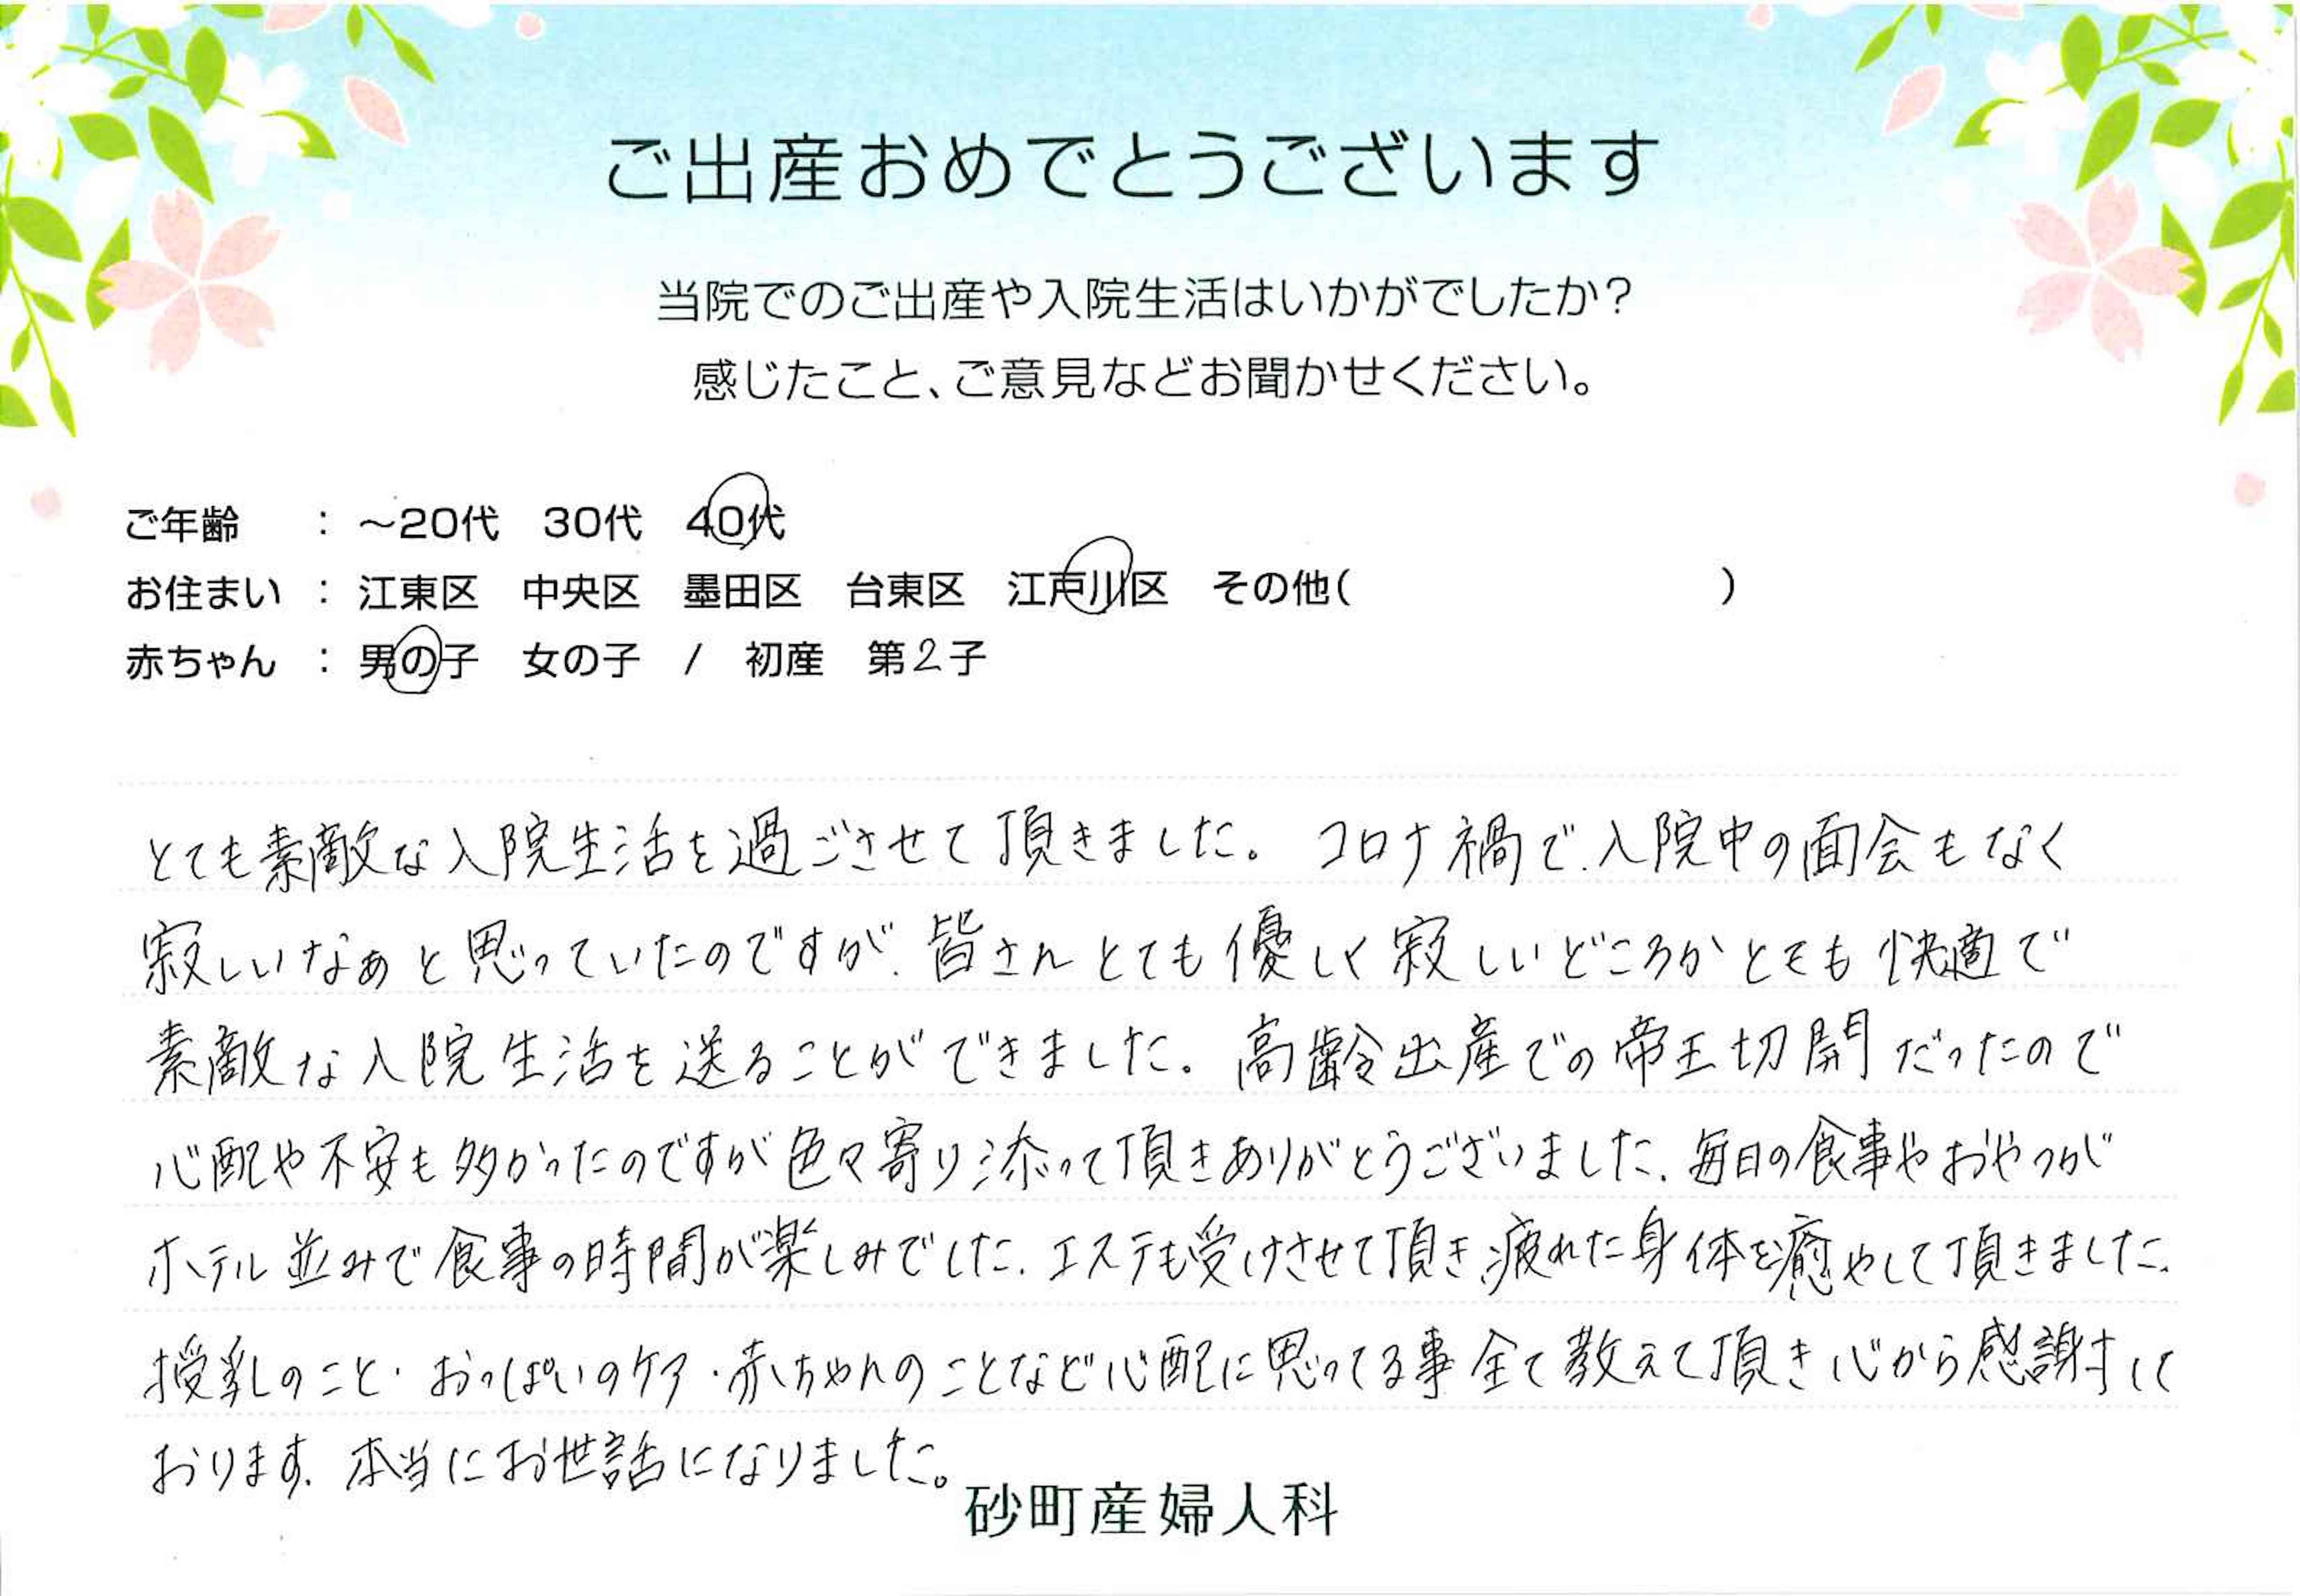 ご出産おめでとうございます
当院でのご出産や入院生活はいかがでしたか？
感じたこと、ご意見などお聞かせください。
ご年齢 ： ～20代 30代 40代
お住まい ： 江東区 中央区 墨田区 台東区 江戸川区 その他( )
赤ちゃん ： 男の子 女の子 / 初産 第2子
とても素敵な入院生活を過ごさせて頂きました。コロナ禍で、入院中の面会もなく
寂しいなぁと思っていたのですが、皆さんとても優しく寂しいどころかとても快適で
素敵な入院生活を送ることができました。高齢出産での帝王切開だったので
心配や不安も多かったのですが色々寄り添って頂きありがとうございました。毎日の食事やおやつが
ホテル並みで食事の時間が楽しみでした。エステも受けさせて頂き、疲れた身体を癒やして頂きました。
授乳のこと・おっぱいのケア・赤ちゃんのことなど心配に思ってる事全て教えて頂き心から感謝して
おります。本当にお世話になりました。
砂町産婦人科